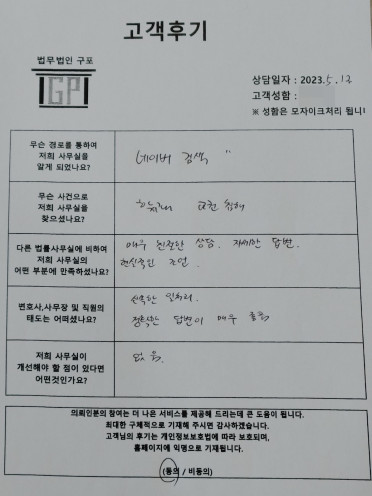 고객후기
법무법인 구포
GP
상담일자 : 2023. 5. 12
고객성함 :
※ 성함은 모자이크처리 됩니
무슨 경로를 통하여
저희 사무실을
알게 되었나요?
네이버 검색 "
무슨 사건으로
저희 사무실을
찾으셨나요?
다른 법률사무실에 비하여
저희 사무실의
어떤 부분에 만족하셨나요?
매우 친절한 상담. 자세한 답변.
현실적인 조언.
변호사,사무장 및 직원의
태도는 어떠셨나요?
신속한 일처리.
정확한 답변이 매우 좋음
저희 사무실이
개선해야 할 점이 있다면
어떤것인가요?
없음.
의뢰인분의 참여는 더 나은 서비스를 제공해 드리는데 큰 도움이 됩니다.
최대한 구체적으로 기재해 주시면 감사하겠습니다.
고객님의 후기는 개인정보보호법에 따라 보호되며,
홈페이지에 익명으로 기재됩니다.
(동의 / 비동의)